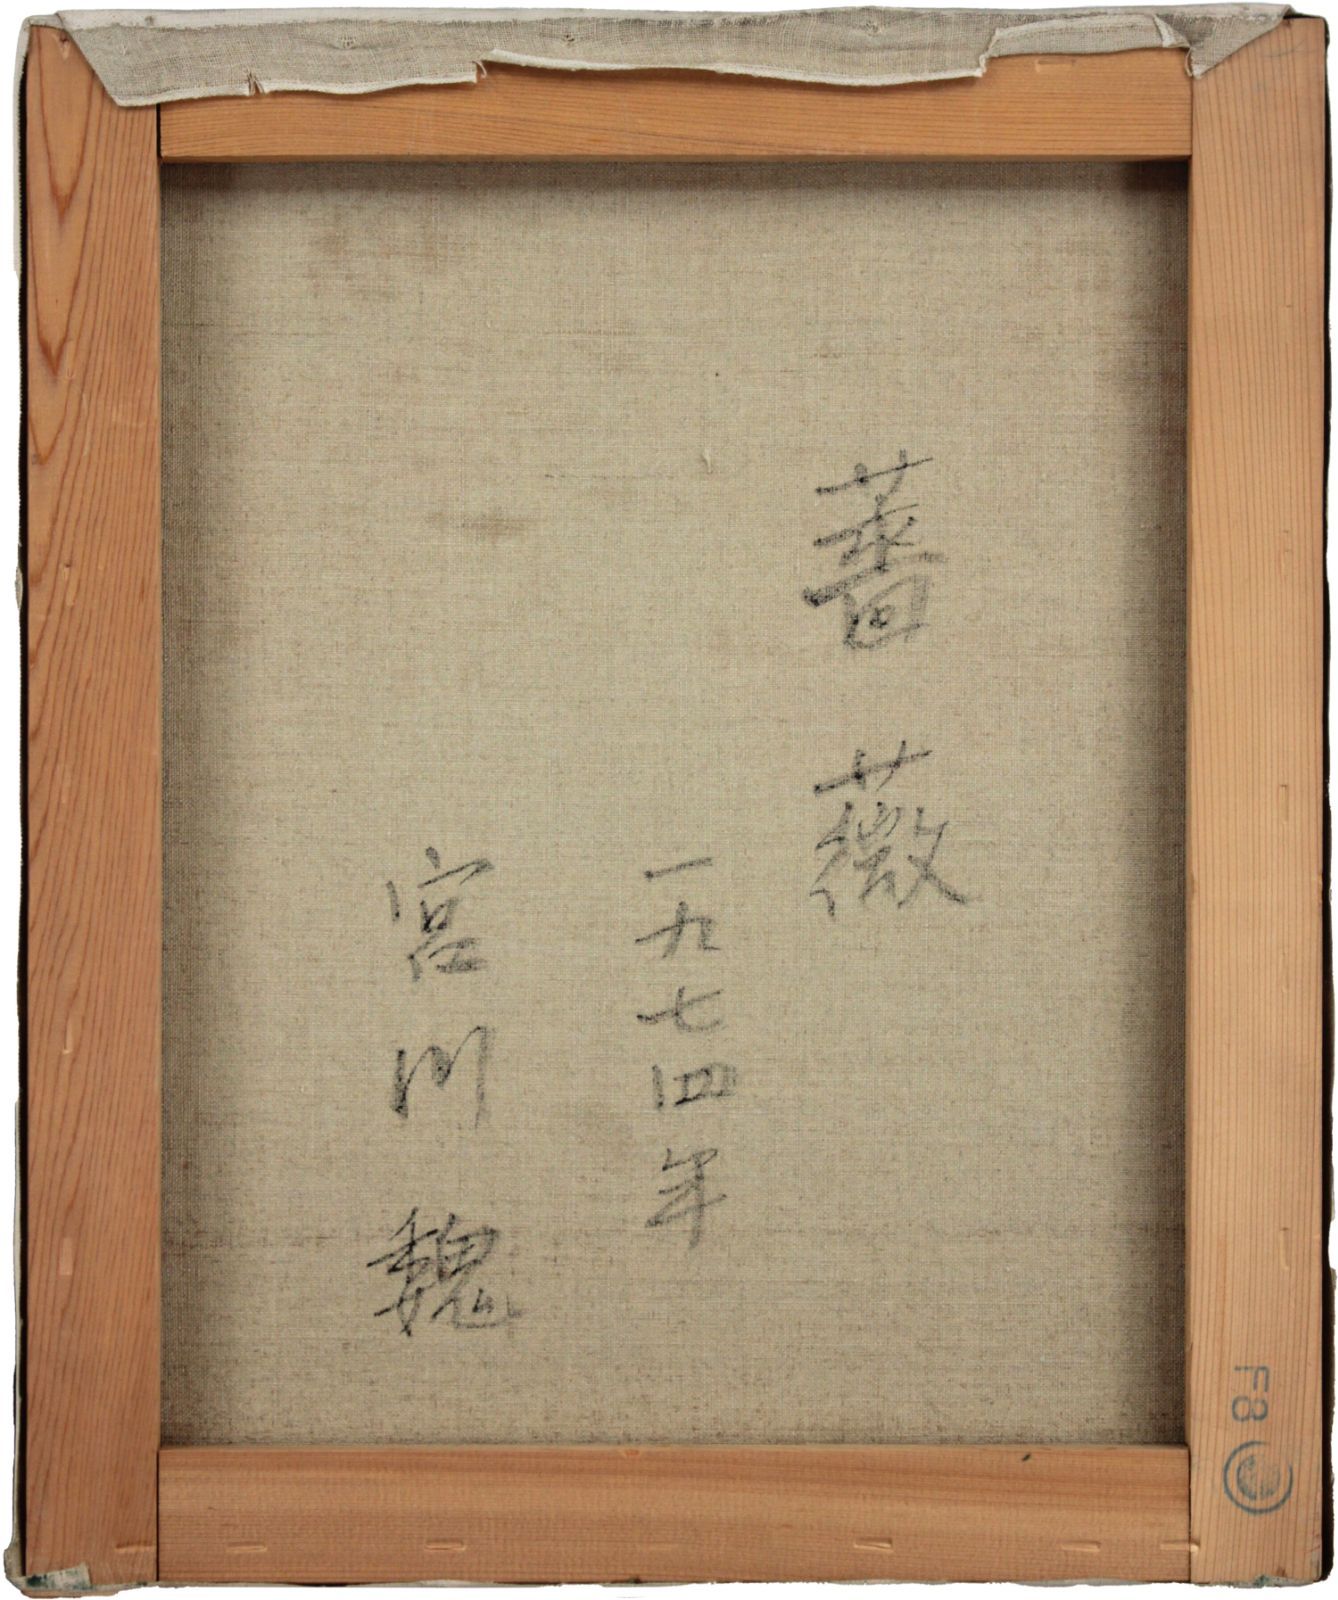 薔薇
一九七四年
宮川魏
F8